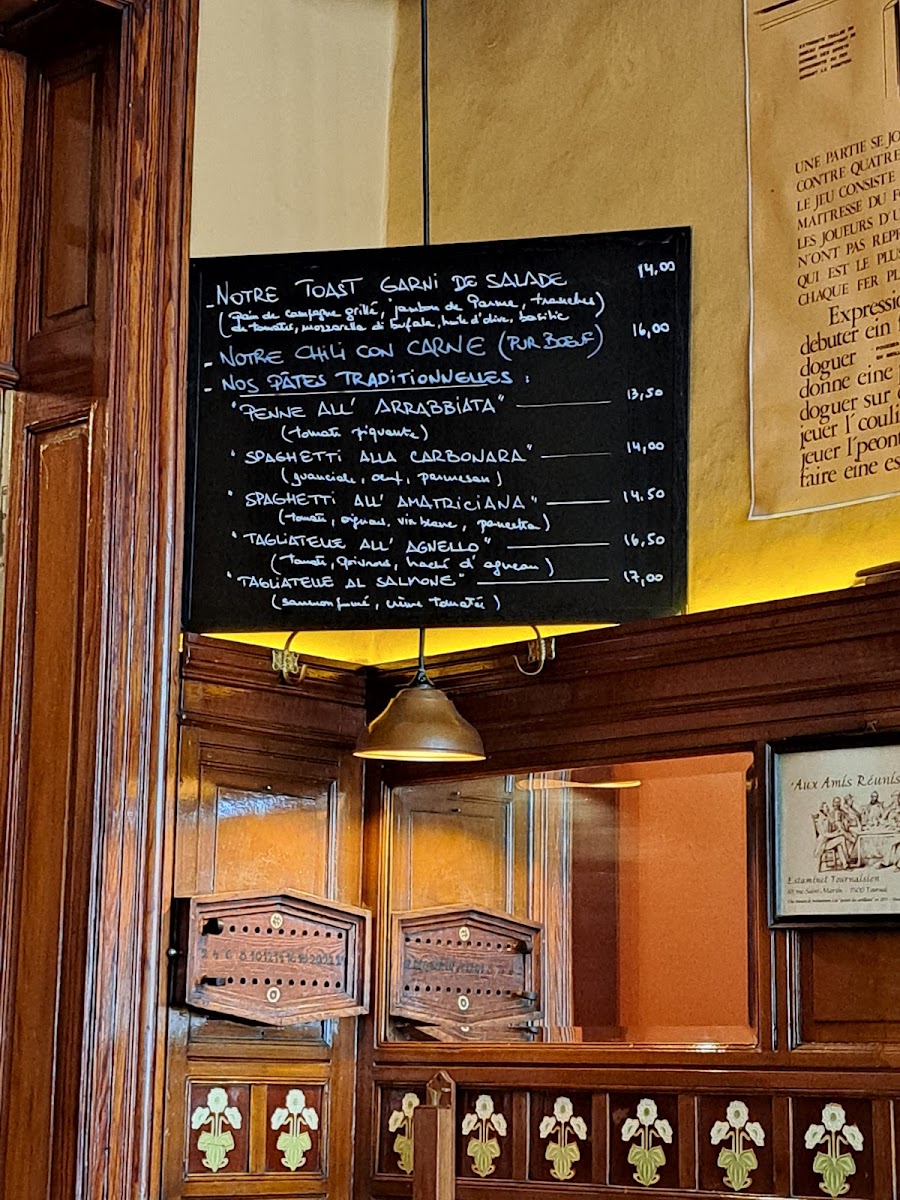 - NOTRE TOAST GARNI DE SALADE 14,00
(pain de campagne grillé, jambon de Parme, tranches
de tomates, mozzarella di bufala, huile d'olive, basilic)
- NOTRE CHILI CON CARNE (PUR BŒUF) 16,00
- NOS PÂTES TRADITIONNELLES :
"PENNE ALL' ARRABBIATA" 13,50
(tomate piquante)
"SPAGHETTI ALLA CARBONARA" 14,00
(guanciale, œuf, parmesan)
"SPAGHETTI ALL' AMATRICIANA" 14.50
(tomate, oignons, vin blanc, pancetta)
"TAGLIATELLE ALL' AGNELLO" 16,50
(tomate, poivrons, haché d'agneau)
"TAGLIATELLE AL SALMONE" 17,00
(saumon fumé, crème tomatée)
UNE PARTIE SE JO
CONTRE QUATRE
LE JEU CONSISTE
MAITRESSE DU F
LES JOUEURS D'U
N'ONT PAS REP
QUI EST LE PLU
CHAQUE FER PL
Expressio
debuter ein f
doguer
donne eine
doguer sur
jeuer l'couli
jeuer l'peont
faire eine es
"Aux Amis Réunis
Estaminet Tournaisien